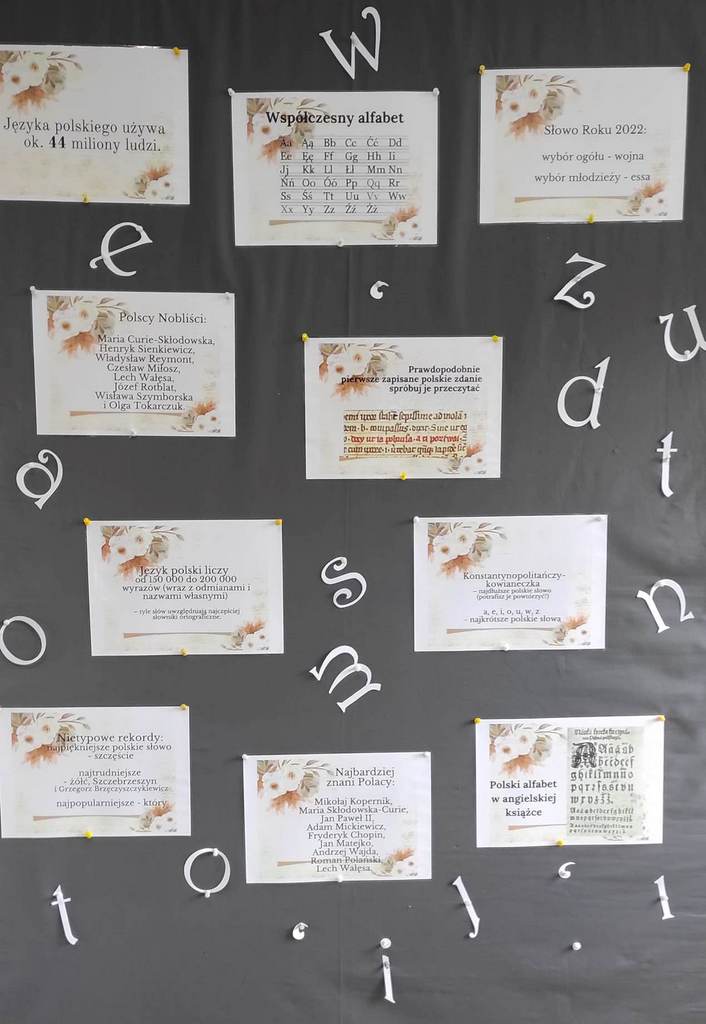 Języka polskiego używa
ok. 44 miliony ludzi.
w
Współczesny alfabet
Aa Ąą Bb Cc Ćć Dd
Ee Ęę Ff Gg Hh Ii
Jj Kk Ll Łł Mm Nn
Ńń Oo Óó Pp Qq Rr
Ss Śś Tt Uu Vv Ww
Xx Yy Zz Źź Żż
Słowo Roku 2022:
wybór ogółu - wojna
wybór młodzieży - essa
e
z
u
Polscy Nobliści:
Maria Curie-Skłodowska,
Henryk Sienkiewicz,
Władysław Reymont,
Czesław Miłosz,
Lech Wałęsa,
Józef Rotblat,
Wisława Szymborska
i Olga Tokarczuk.
Prawdopodobnie
pierwsze zapisane polskie zdanie
spróbuj je przeczytać
d
t
a
Język polski liczy
od 150 000 do 200 000
wyrazów (wraz z odmianami i
nazwami własnymi)
- tyle słów uwzględniają najczęściej
słowniki ortograficzne.
s
Konstantynopolitańczy-
kowianeczka
- najdłuższe polskie słowo
(potrafisz je powtórzyć?)
a, e, i, o, u, w, z
- najkrótsze polskie słowa
n
o
m
Nietypowe rekordy:
najpiękniejsze polskie słowo
- szczęście
najtrudniejsze
- żółć, Szczebrzeszyn
i Grzegorz Brzęczyszczykiewicz
najpopularniejsze - który
Najbardziej
znani Polacy:
Mikołaj Kopernik,
Maria Skłodowska-Curie,
Jan Paweł II,
Adam Mickiewicz,
Fryderyk Chopin,
Jan Matejko,
Andrzej Wajda,
Roman Polański,
Lech Wałęsa,
Polski alfabet
w angielskiej
książce
o
t
j
l
i